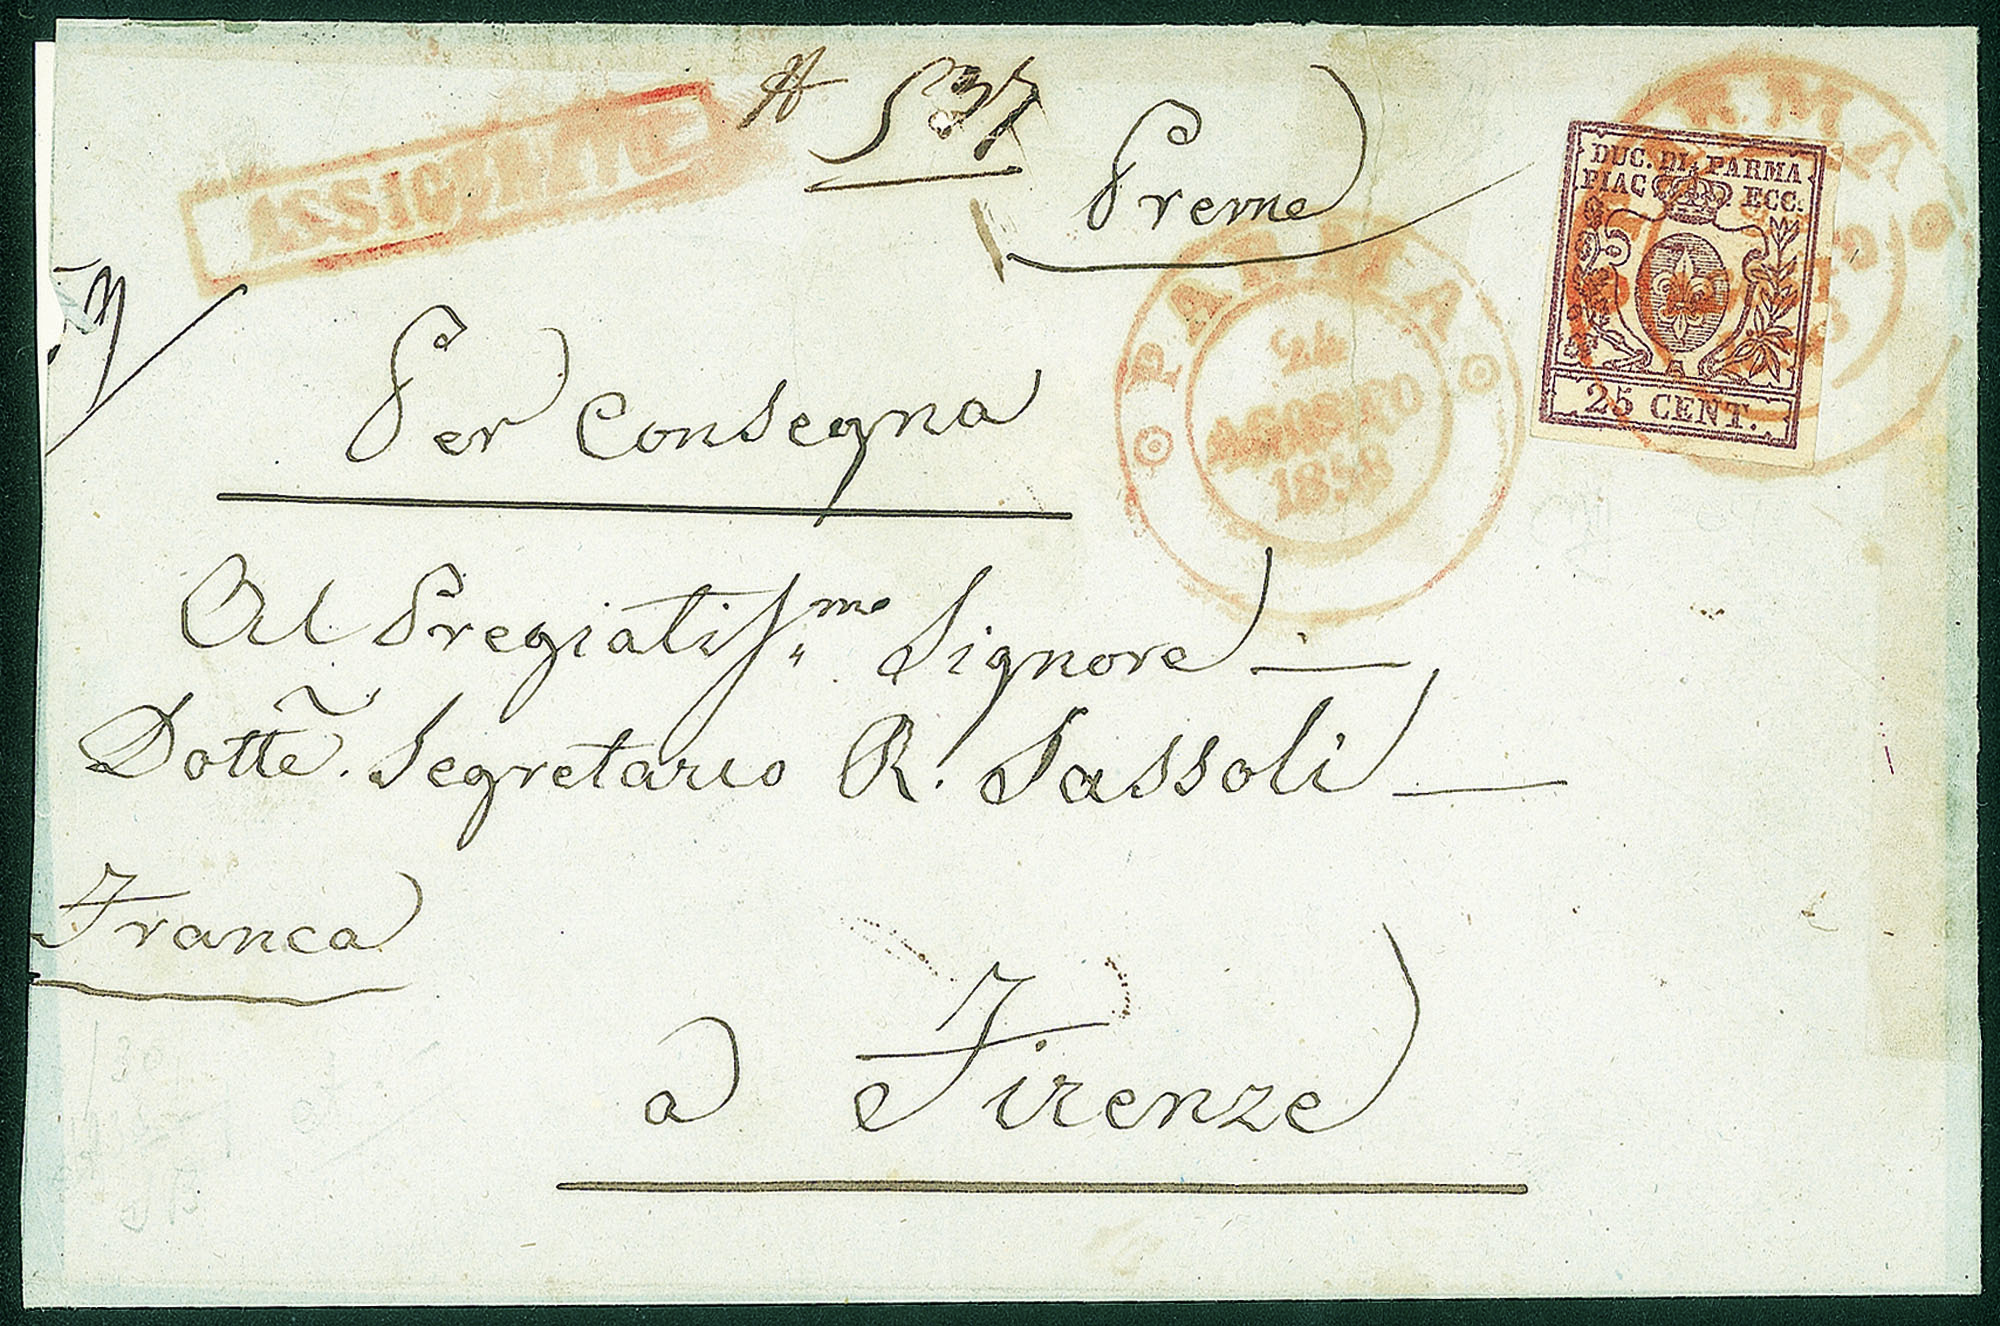 ASSICURATO
537
Preme
PARMA
24
AGOSTO
1858
DUC. DI. PARMA
PIAC. ECC.
25 CENT.
Per Consegna
Al Pregiatiss.mo Signore
Dotte. Segretario R. Sassoli
Franca
a Firenze